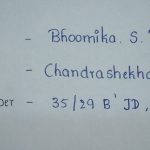 - Bhoomika. S.
- Chandrashekha
- 35/29 B' JD,